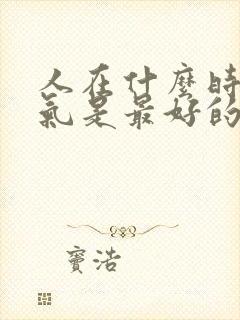 人在什麼時
氣是最好的
寶浩